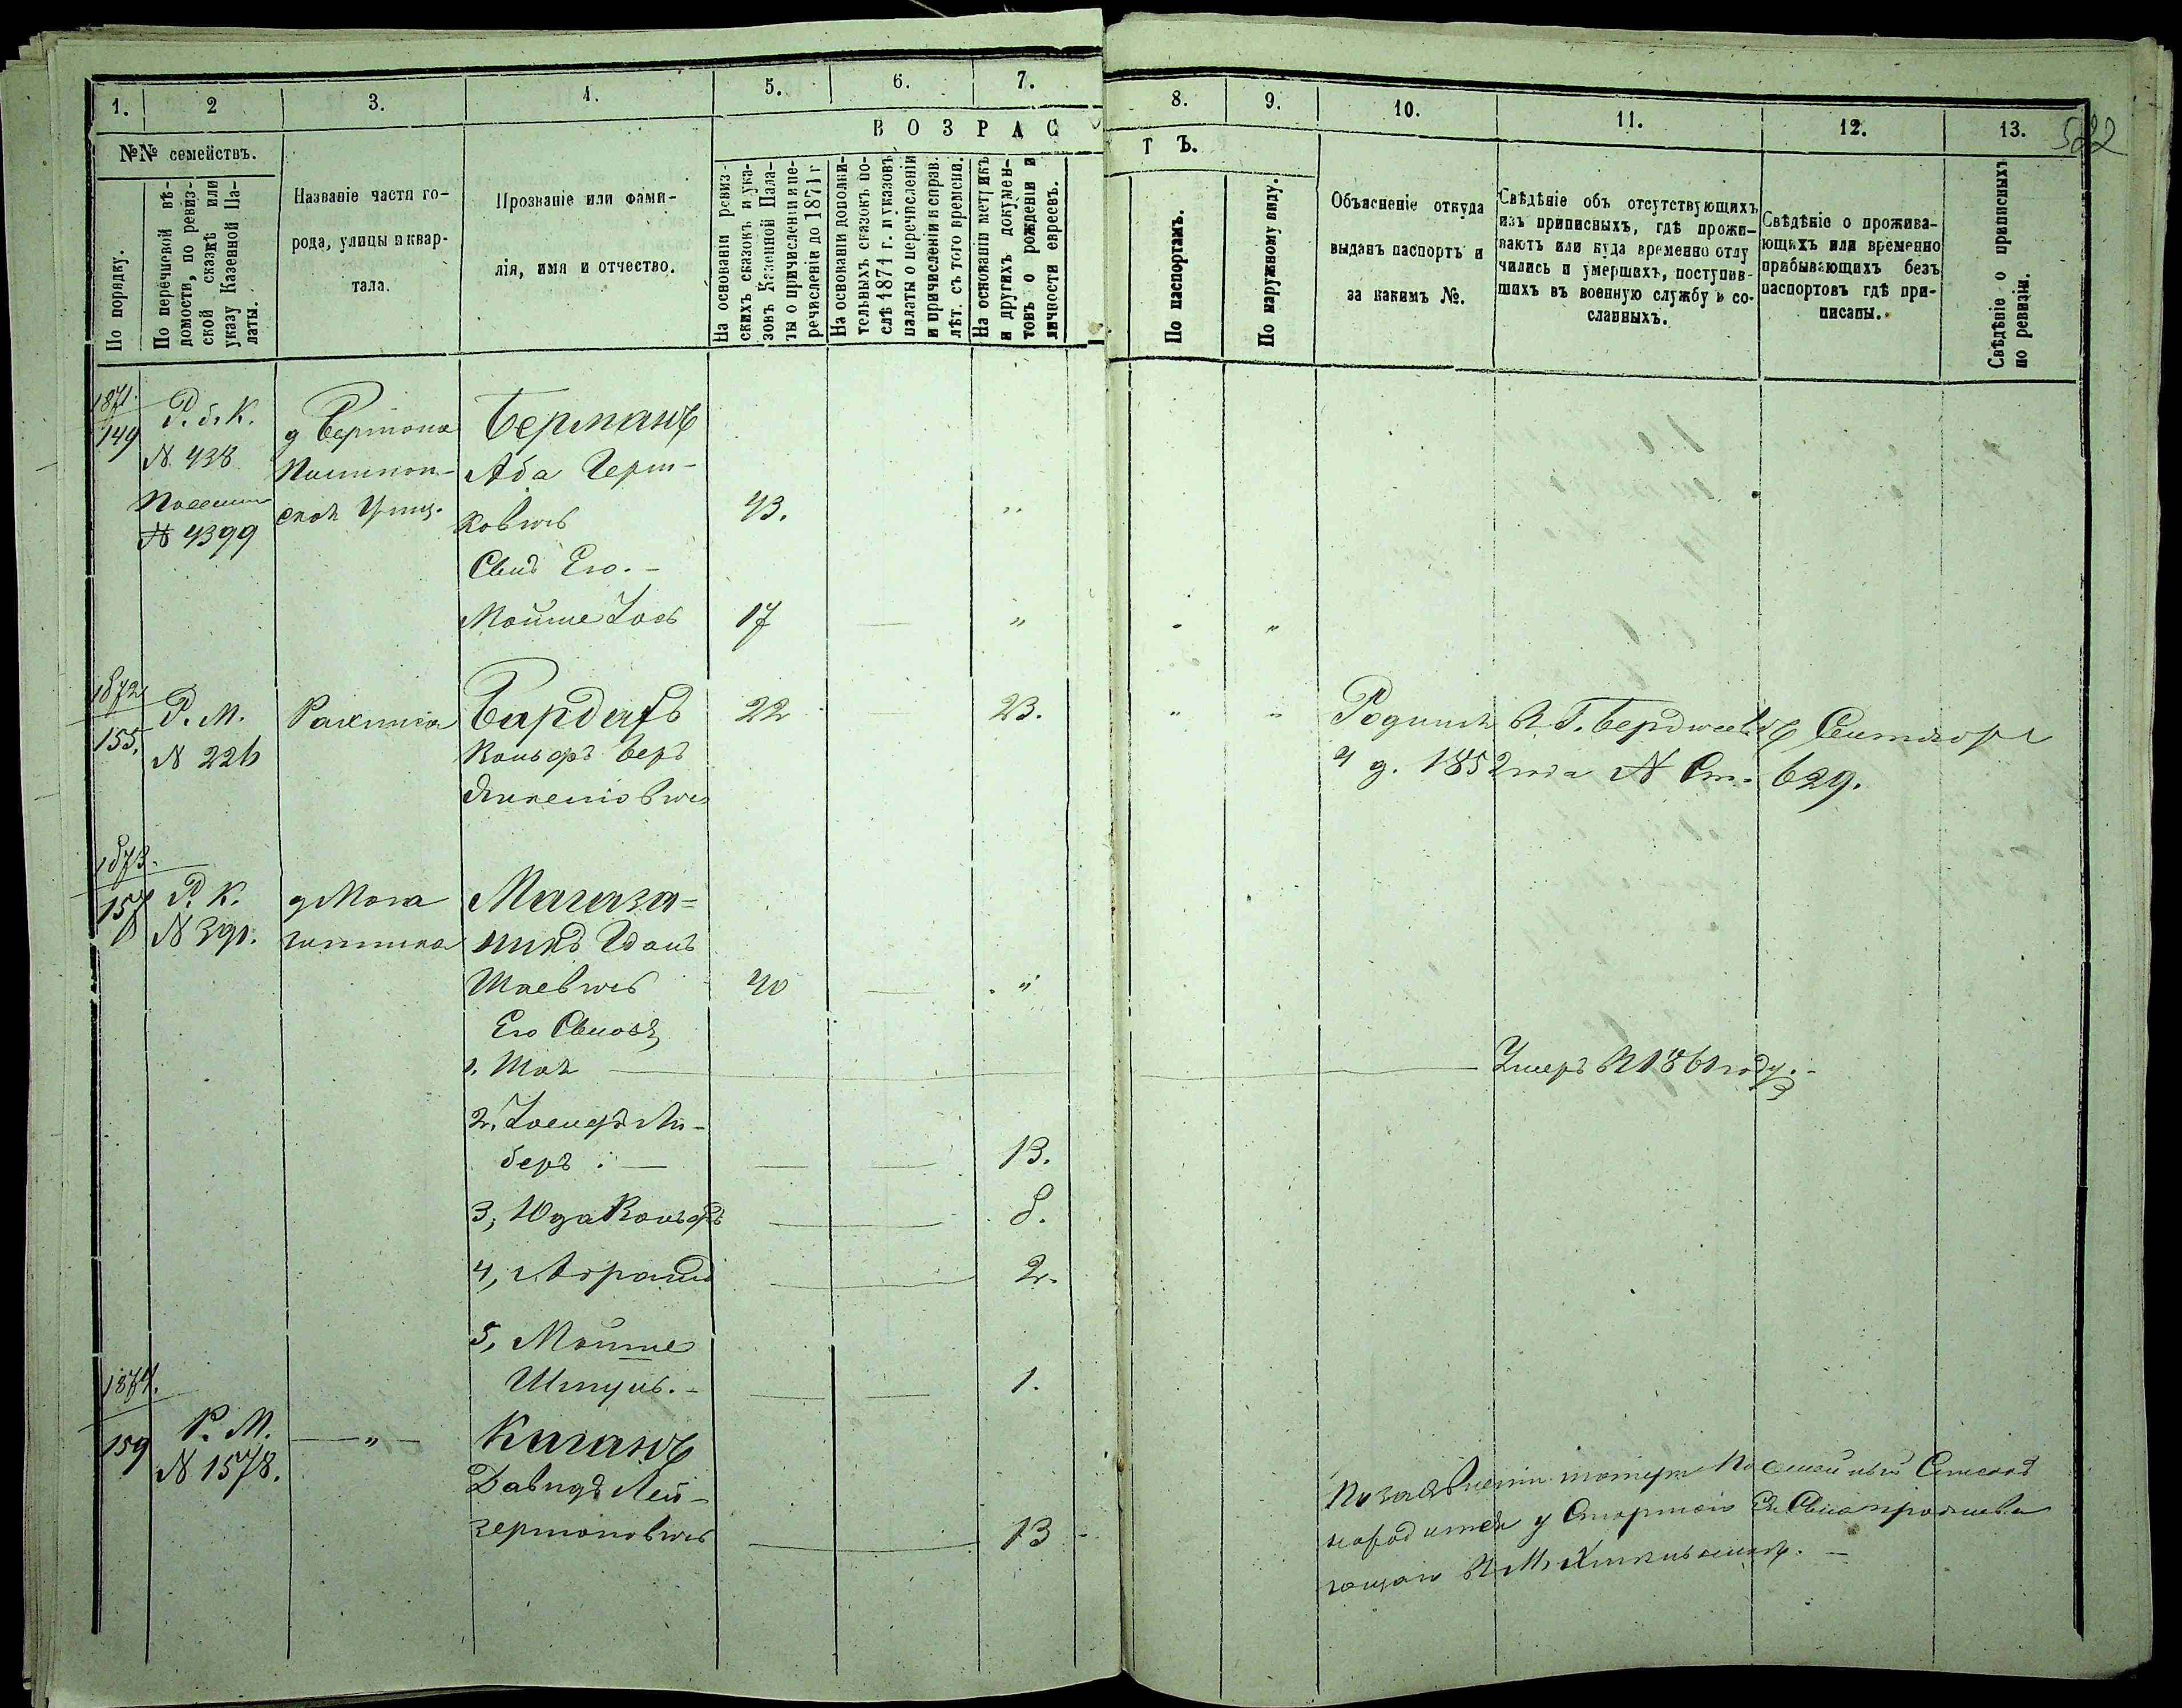 1. 2 3. 4. 5. 6. 7. 8. 9. 10. 11. 12. 13. 522
№№ семействъ.
По порядку.
По перечневой вѣ-
домости, по ревиз-
ской сказкѣ или
указу Казенной Па-
латы.
Названіе части го-
рода, улицы и квар-
тала.
Прозваніе или фами-
лія, имя и отчество.
ВОЗРАСТЪ.
На основаніи ревиз-
скихъ сказокъ и ука-
зовъ Казенной Пала-
ты о причисленіи и пе-
речисленіи до 1874 г
На основаніи дополни-
тельныхъ сказокъ по-
слѣ 1874 г. и указовъ
палаты о перечисленіи
и причисленіи и справ.
лѣт. съ того времени.
На основаніи метрикъ
и другихъ докумен-
товъ о рожденіи и
личности евреевъ.
По паспортамъ.
По наружному виду.
Объясненіе откуда
выданъ паспортъ и
за какимъ №.
Свѣдѣніе объ отсутствующихъ
изъ приписныхъ, гдѣ прожи-
ваютъ или куда временно отлу
чились и умершихъ, поступив-
шихъ въ военную службу и со-
сланныхъ.
Свѣдѣніе о прожива-
ющихъ или временно
прибывающихъ безъ
паспортовъ гдѣ при-
писаны.
Свѣдѣніе о приписныхъ
по ревизіи.
1871.
149
Р. б. К.
N 438
N 4399
Берманъ
Аба Герш-
ковичъ 43.
Сынъ Его.-
Мойше Іось 17 — "
1872
155.
Р. М.
N 226
Бардахъ 22 23.
Вольфъ Беръ
Янкеліовичъ
Родился въ Г. Бердичевѣ Сентября
4 д. 1852 года N Ст. 629.
1873.
157
Р. К.
N 391.
Магаза-
никъ Іданъ
Шаевичъ 40 — "
Его Сыновья
1. Шая — Умеръ въ 1861 году.-
2. Іосифъ Ли-
беръ. — 13.
3, Юда Вольфъ — 8.
4, Абрамъ — 2.
5, Мойше
Шмуль.- — 1.
1874.
159
Р. М.
N 1578.
— " —
Каганъ
Давидъ Лей-
зероновичъ — 13
По заявленію матери Посемейный Списокъ
находится у Старшаго Ея Сына прожива
ющаго въ М.